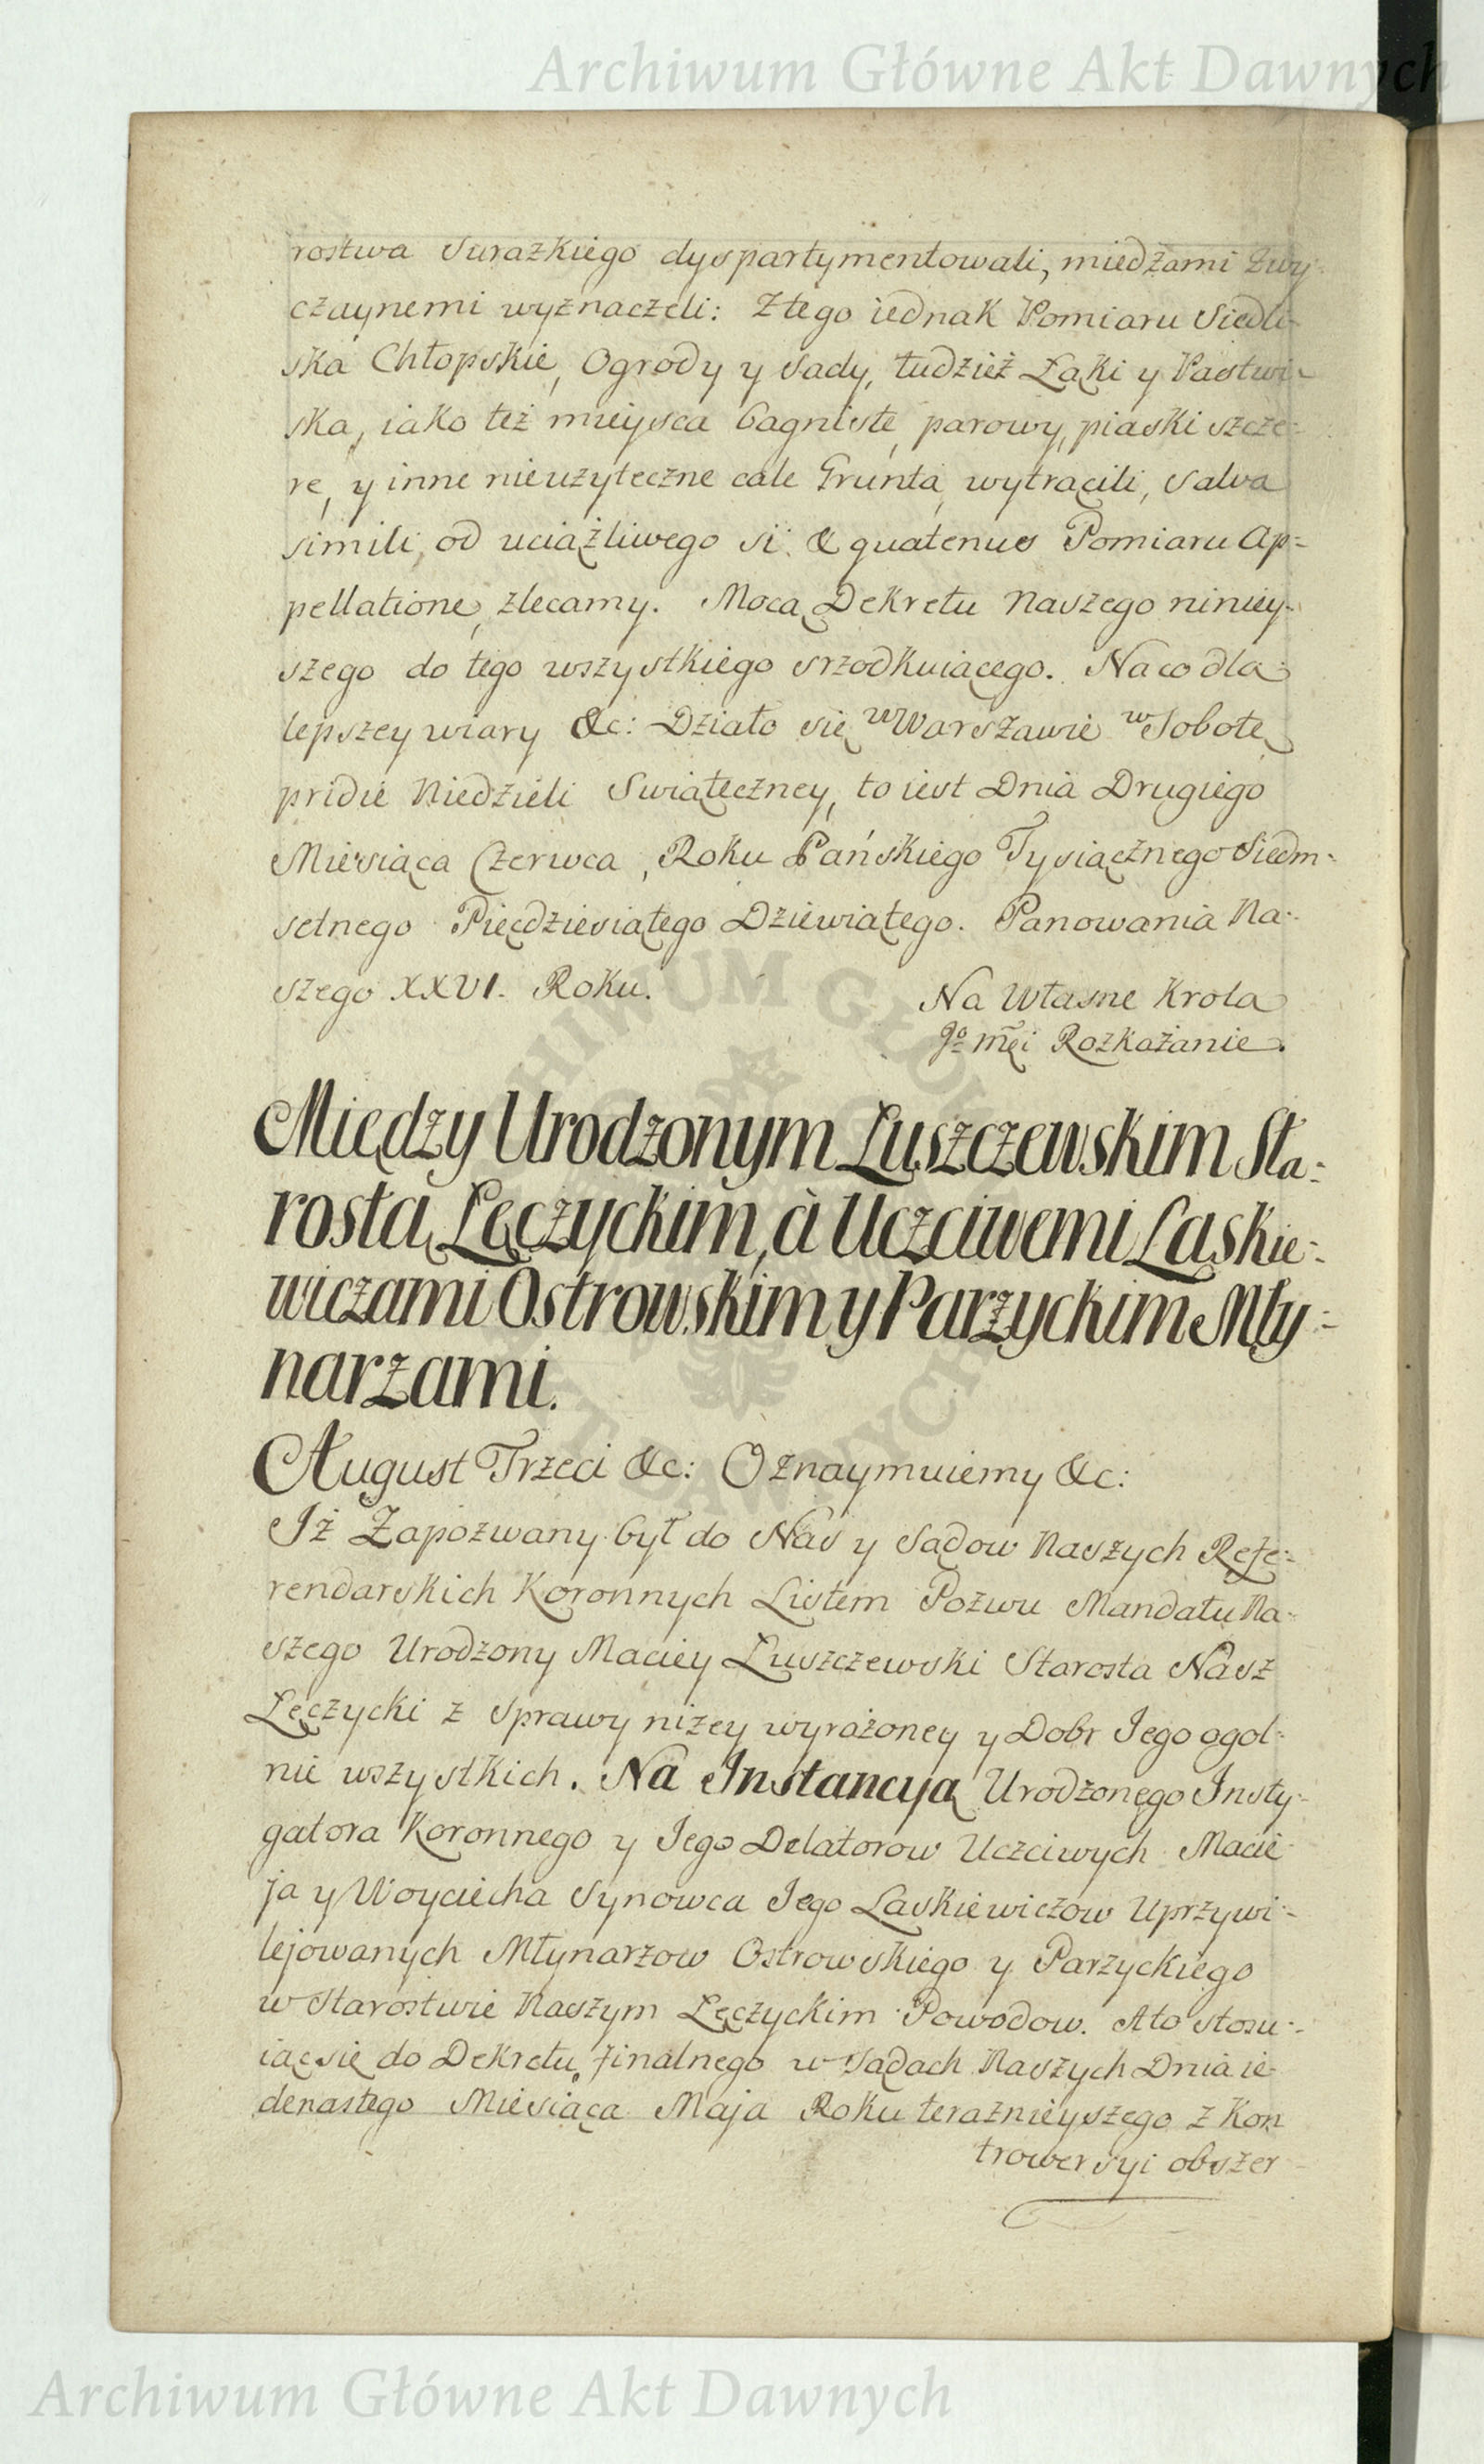 Archiwum Główne Akt Dawnych
rostwa Surazkiego dyspartymentowali, miedzami zwy-
czaynemi wyznaczeli: Z tego iednak Pomiaru Siedli-
ska Chłopskie, Ogrody y Sady, tudzież Łąki y Pastwi-
ska, iako też mieysca bagniste, parowy, piaski szcze-
re, y inne nieużyteczne cale Grunta, wytrącili, Salva
simili, od uciążliwego si & quatenus Pomiaru Ap=
pellatione, zlecamy. Mocą Dekretu Naszego niniey-
szego do tego wszystkiego srzodkuiącego. Na co dla
lepszey wiary &c: Działo się w Warszawie w Sobotę
pridie Niedzieli Swiąteczney, to iest Dnia Drugiego
Miesiąca Czerwca, Roku Pańskiego Tysiącznego Siedm-
setnego Pięćdziesiątego Dziewiątego. Panowania Na-
szego XXVI. Roku.
Na Własne Krola
Jo mći Rozkazanie.
Między Urodzonym Łuszczewskim Sta-
rostą Łęczyckim, à Uczciwemi Laskie-
wiczami Ostrowskim y Parzyckim Mły-
narzami.
August Trzeci &c: Oznaymuiemy &c:
Iż Zapozwany był do Nas y Sądow Naszych Refe-
rendarskich Koronnych Listem Pozwu Mandatu Na-
szego Urodzony Maciey Łuszczewski Starosta Nasz
Łęczycki z Sprawy niżey wyrażoney y Dobr Jego ogol-
nie wszystkich. Na Instancyą Urodzonego Insty-
gatora Koronnego y Jego Delatorow Uczciwych Macie-
ja y Woyciecha Synowca Jego Laskiewiczow Uprzywi-
lejowanych Młynarzow Ostrowskiego y Parzyckiego
w Starostwie Naszym Łęczyckim Powodow. A to stosu-
iąc się do Dekretu finalnego w Sądach Naszych Dnia ie-
denastego Miesiąca Maja Roku teraznieyszego z Kon
trowersyi obszer-
Archiwum Główne Akt Dawnych